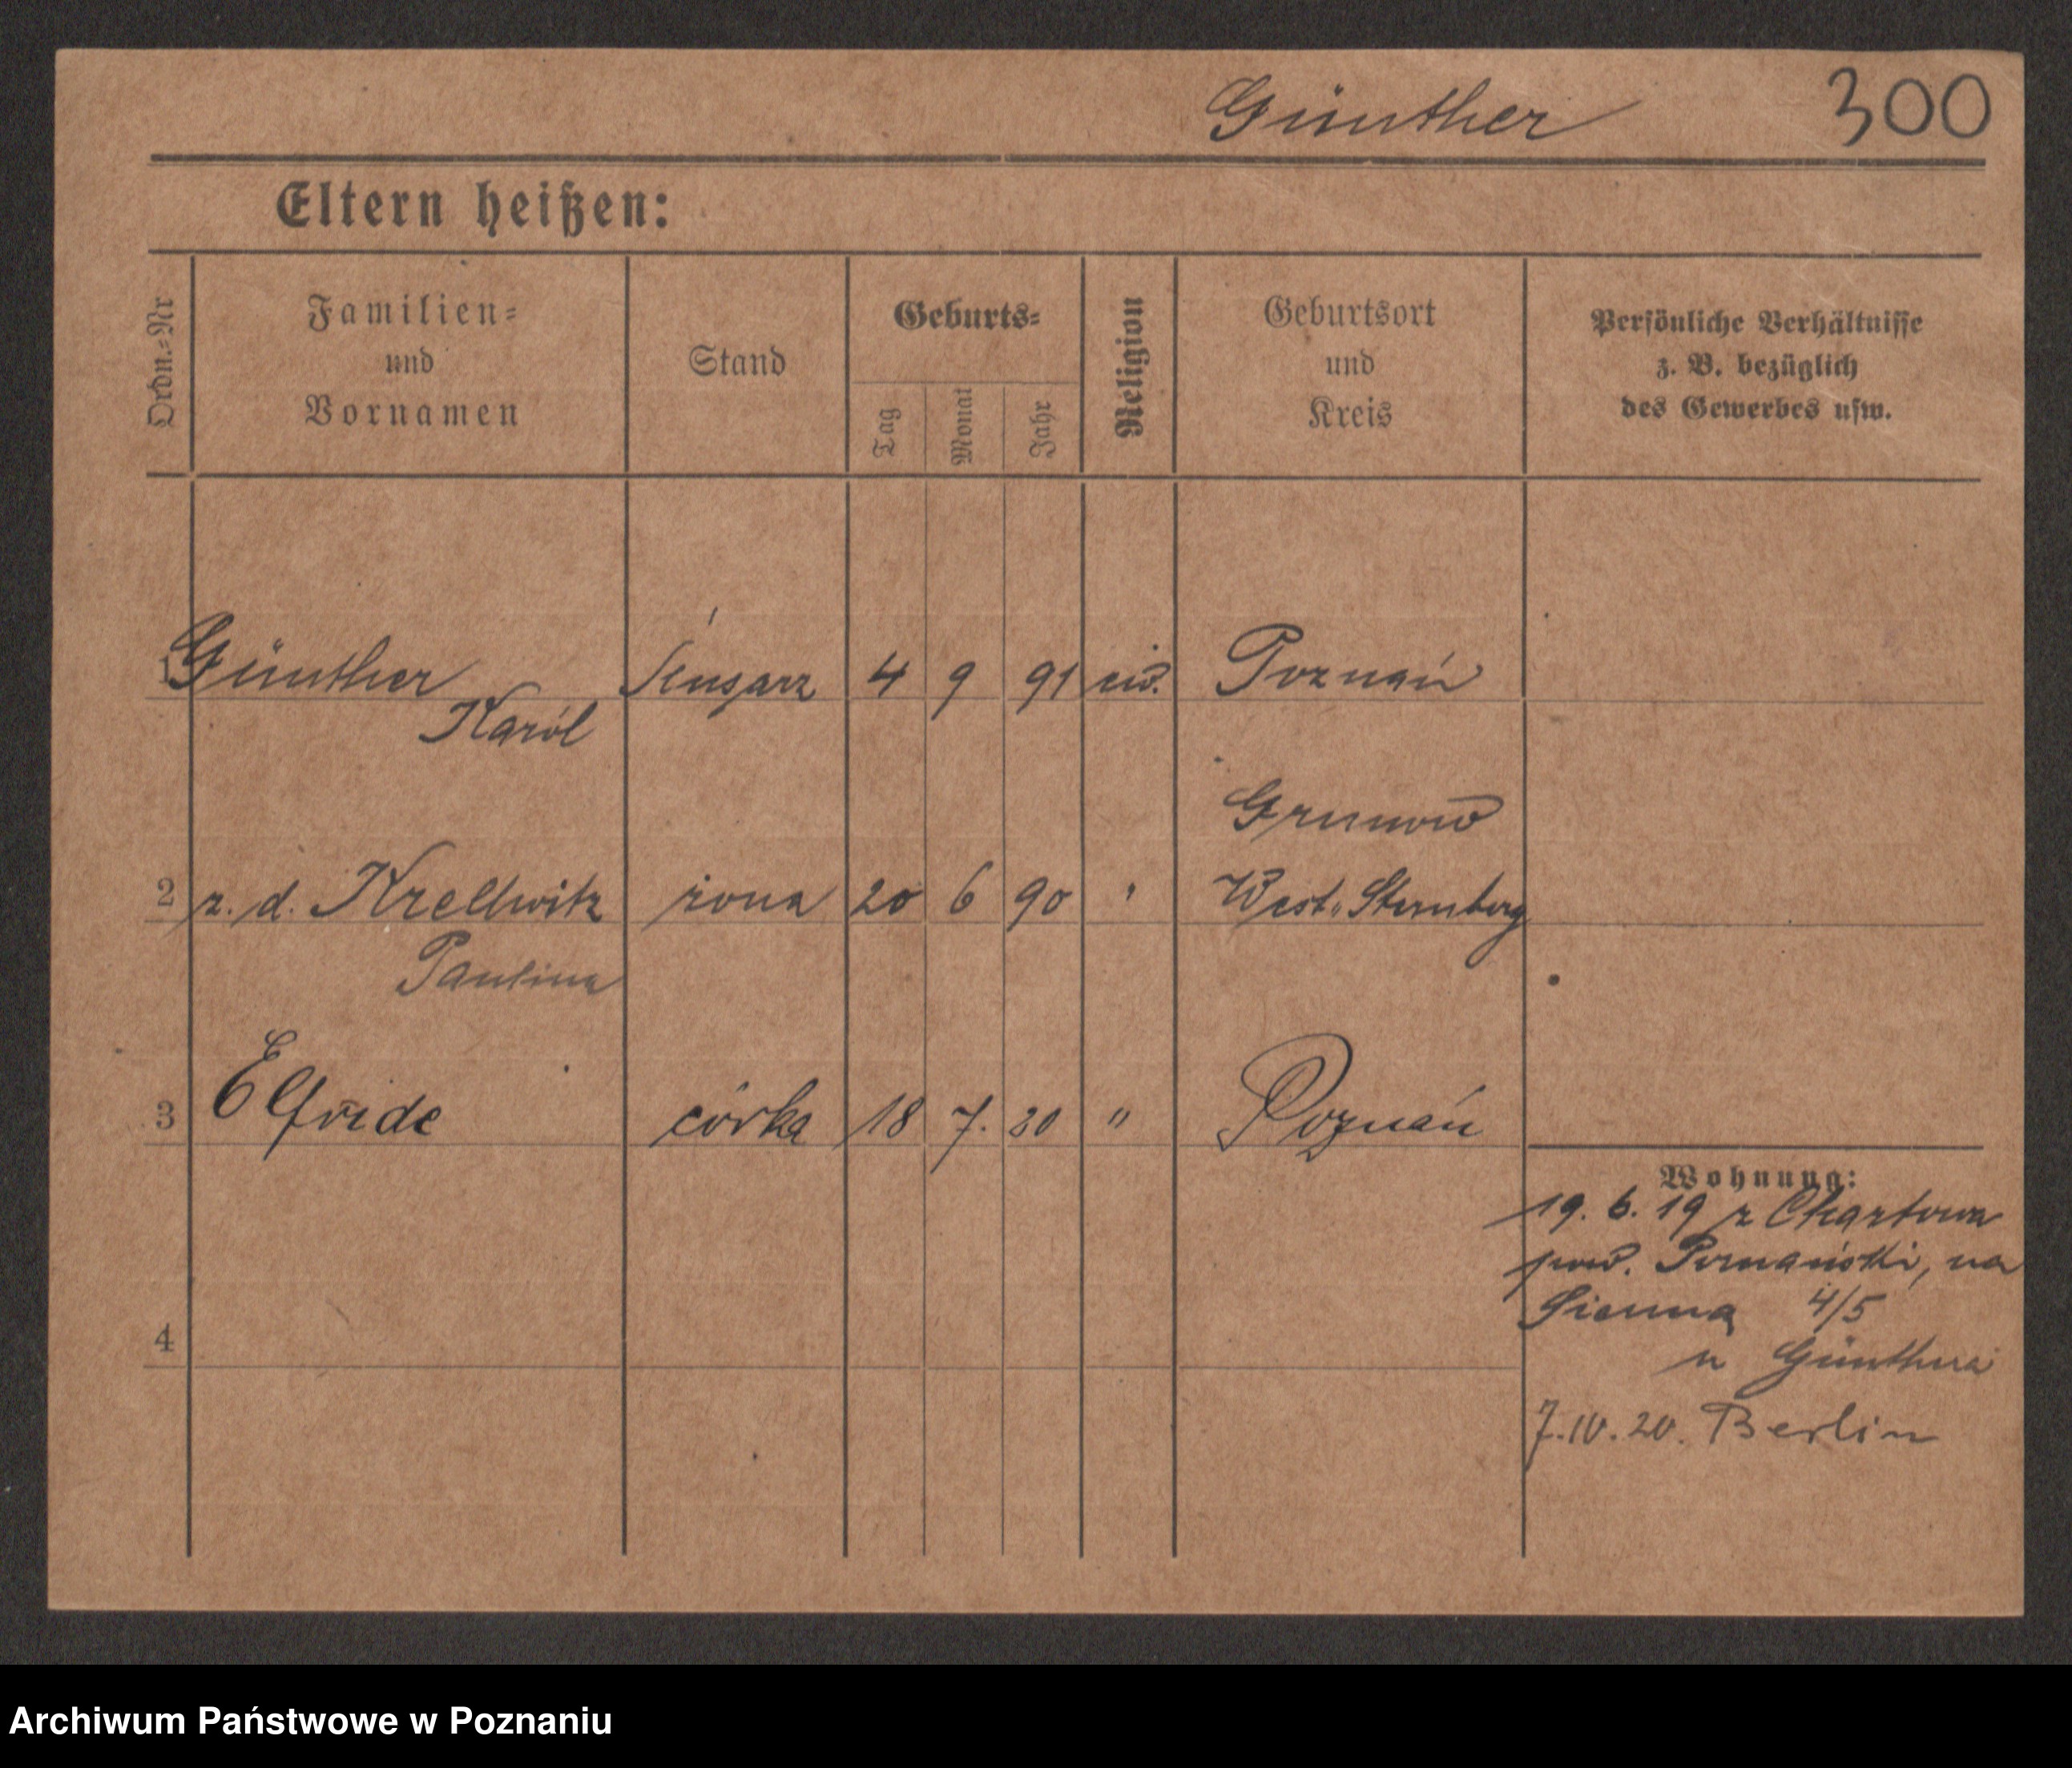 Günther 300
Eltern heißen:
Ordn.-Nr
Familien-
und
Vornamen
Stand
Geburts-
Tag
Monat
Jahr
Religion
Geburtsort
und
Kreis
Persönliche Verhältnisse
z. B. bezüglich
des Gewerbes usw.
Günther ślusarz 4 9 91 ew. Poznań
Karól
Grunow
2 z. d. Krellwitz żona 20 6 90 " West-Sternberg
Paulina
3 Elfride córka 18 7. 20 " Poznań
Wohnung:
19. 6. 19 z Chartowa
pow. Poznański, na
Sienna 4/5
u Günthera
4
7.10.20. Berlin
Archiwum Państwowe w Poznaniu